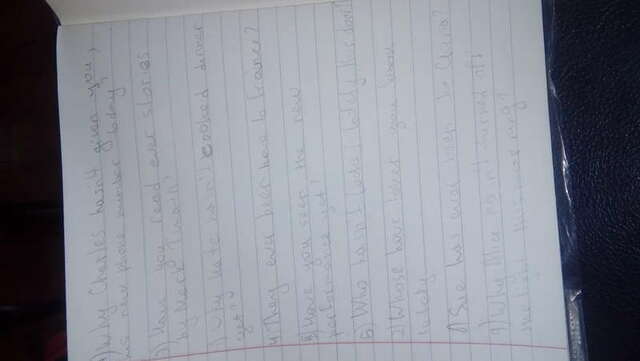 1) Why Charles hasn't given you,
his new phone number today?
2) Have you read ever stories
by Mark Twain?
3) Why Kate hasn't cooked dinner
yet?
4) They ever been have to France?
5) Have you seen the new
performance yet?
6) Who hasn't locked lately this door?
7) Whose have taken you book
lately
8) Sue has ever been to China?
9) Why Alice hasn't turned off
the light this morning?